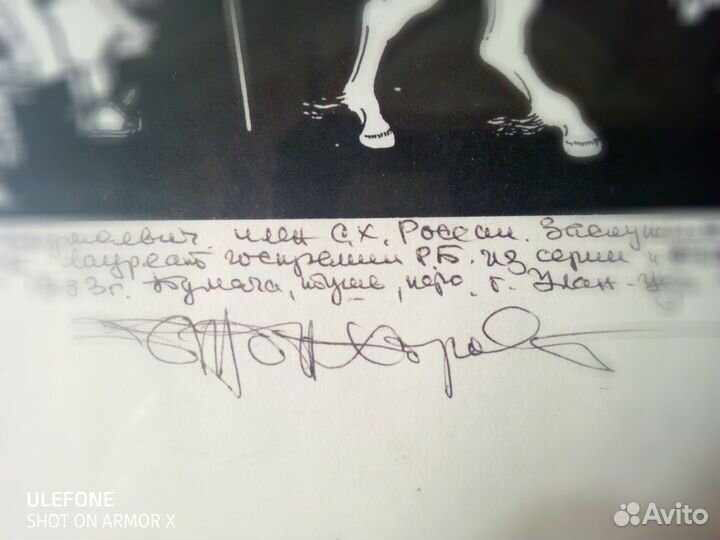 член С.Х. России. Заслуж
лауреат госпремии РБ. из серии
93г. бумага, тушь, перо, г. Улан-Уд
ULEFONE
SHOT ON ARMOR X
Avito